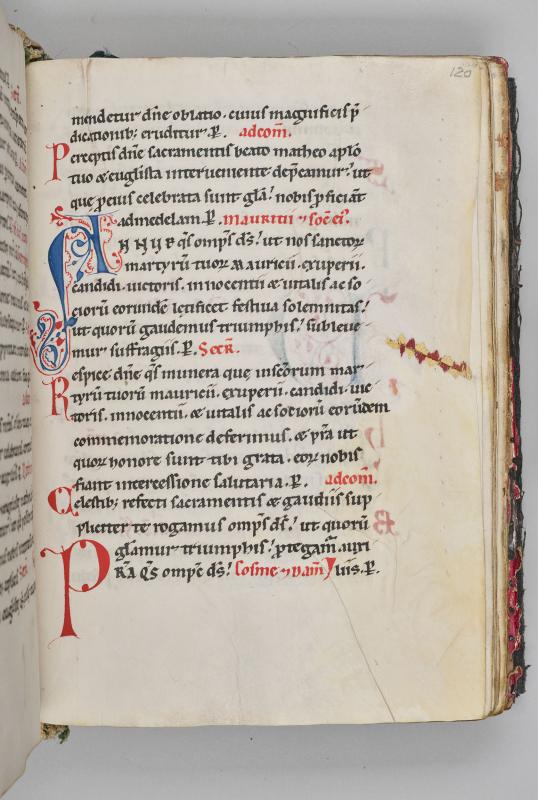 120
mendetur dñe oblatio · cuius magnificis p̄
dicationib; eruditur · P̄. adcom̄.
Perceptis dñe sacramentis beato matheo aplo
tuo & euglista interueniente dep̄camur ! ut
que ꝓ eius celebrata sunt gła ! nobis ꝓficiāt
ad medelam · P̄. mauritii ⁊ soc̄ ei᷒.
ANNUE q̄s omp̄s d̄s ! ut nos sanctor
martyrū tuor Mauricii · exuperii ·
candidi · uictoris · innocentii & uitalis ac so
ciorū eorundē letificet festiua solemnitas !
ut quorū gaudemus triumphis ! subleue
mur suffragiis · P̄. Secr̄.
Respice dñe q̄s munera que in sc̄orum mar
tyrū tuorū mauricii · exuperii · candidi · uic
toris · innocentii · & uitalis ac sociorū eorūdem
commemoratione deferimus · & p̄ra ut
quor honore sunt tibi grata · eor nobis
fiant intercessione salutaria · P̄. adcom̄.
Celestib; refecti sacramentis & gaudiis sup
pliciter te rogamus omp̄s d̄s ! ut quorū
glamur triumphis ! ꝓtegam̄ auxi
PRA Q̄S omp̄e d̄s ! Cosme ⁊ Dam̄ liis · P̄.